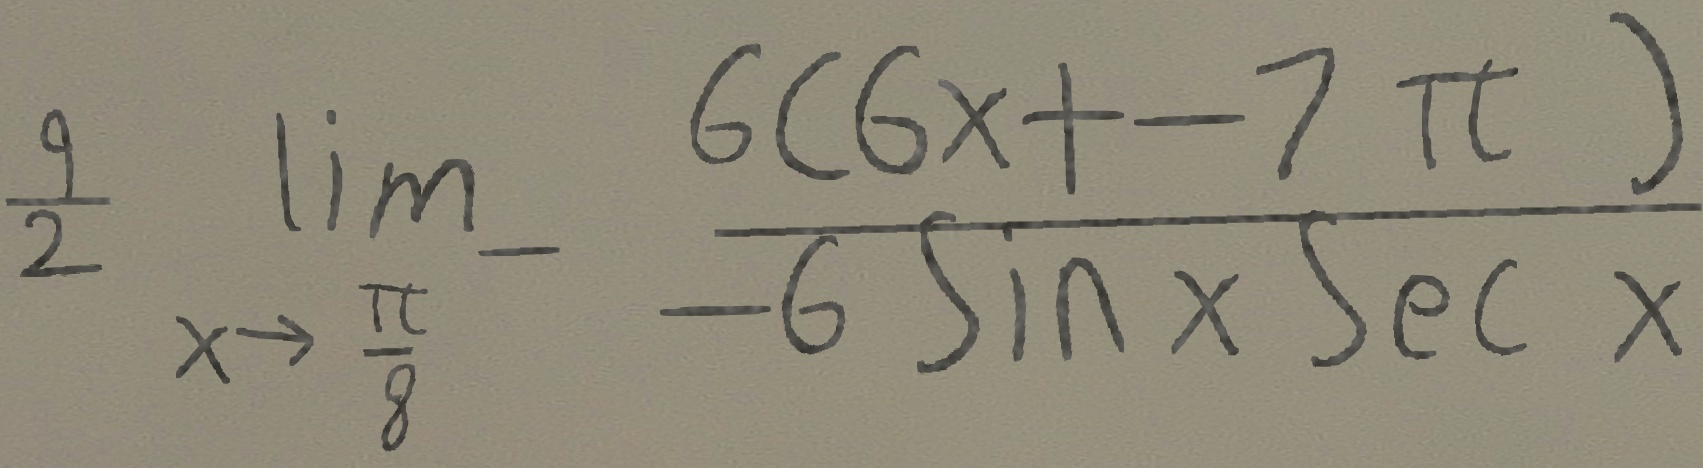 \frac{9}{2} \lim_{x \to \frac{\pi}{8}} - \frac{6(6x + -7\pi)}{-6 \sin x \sec x}